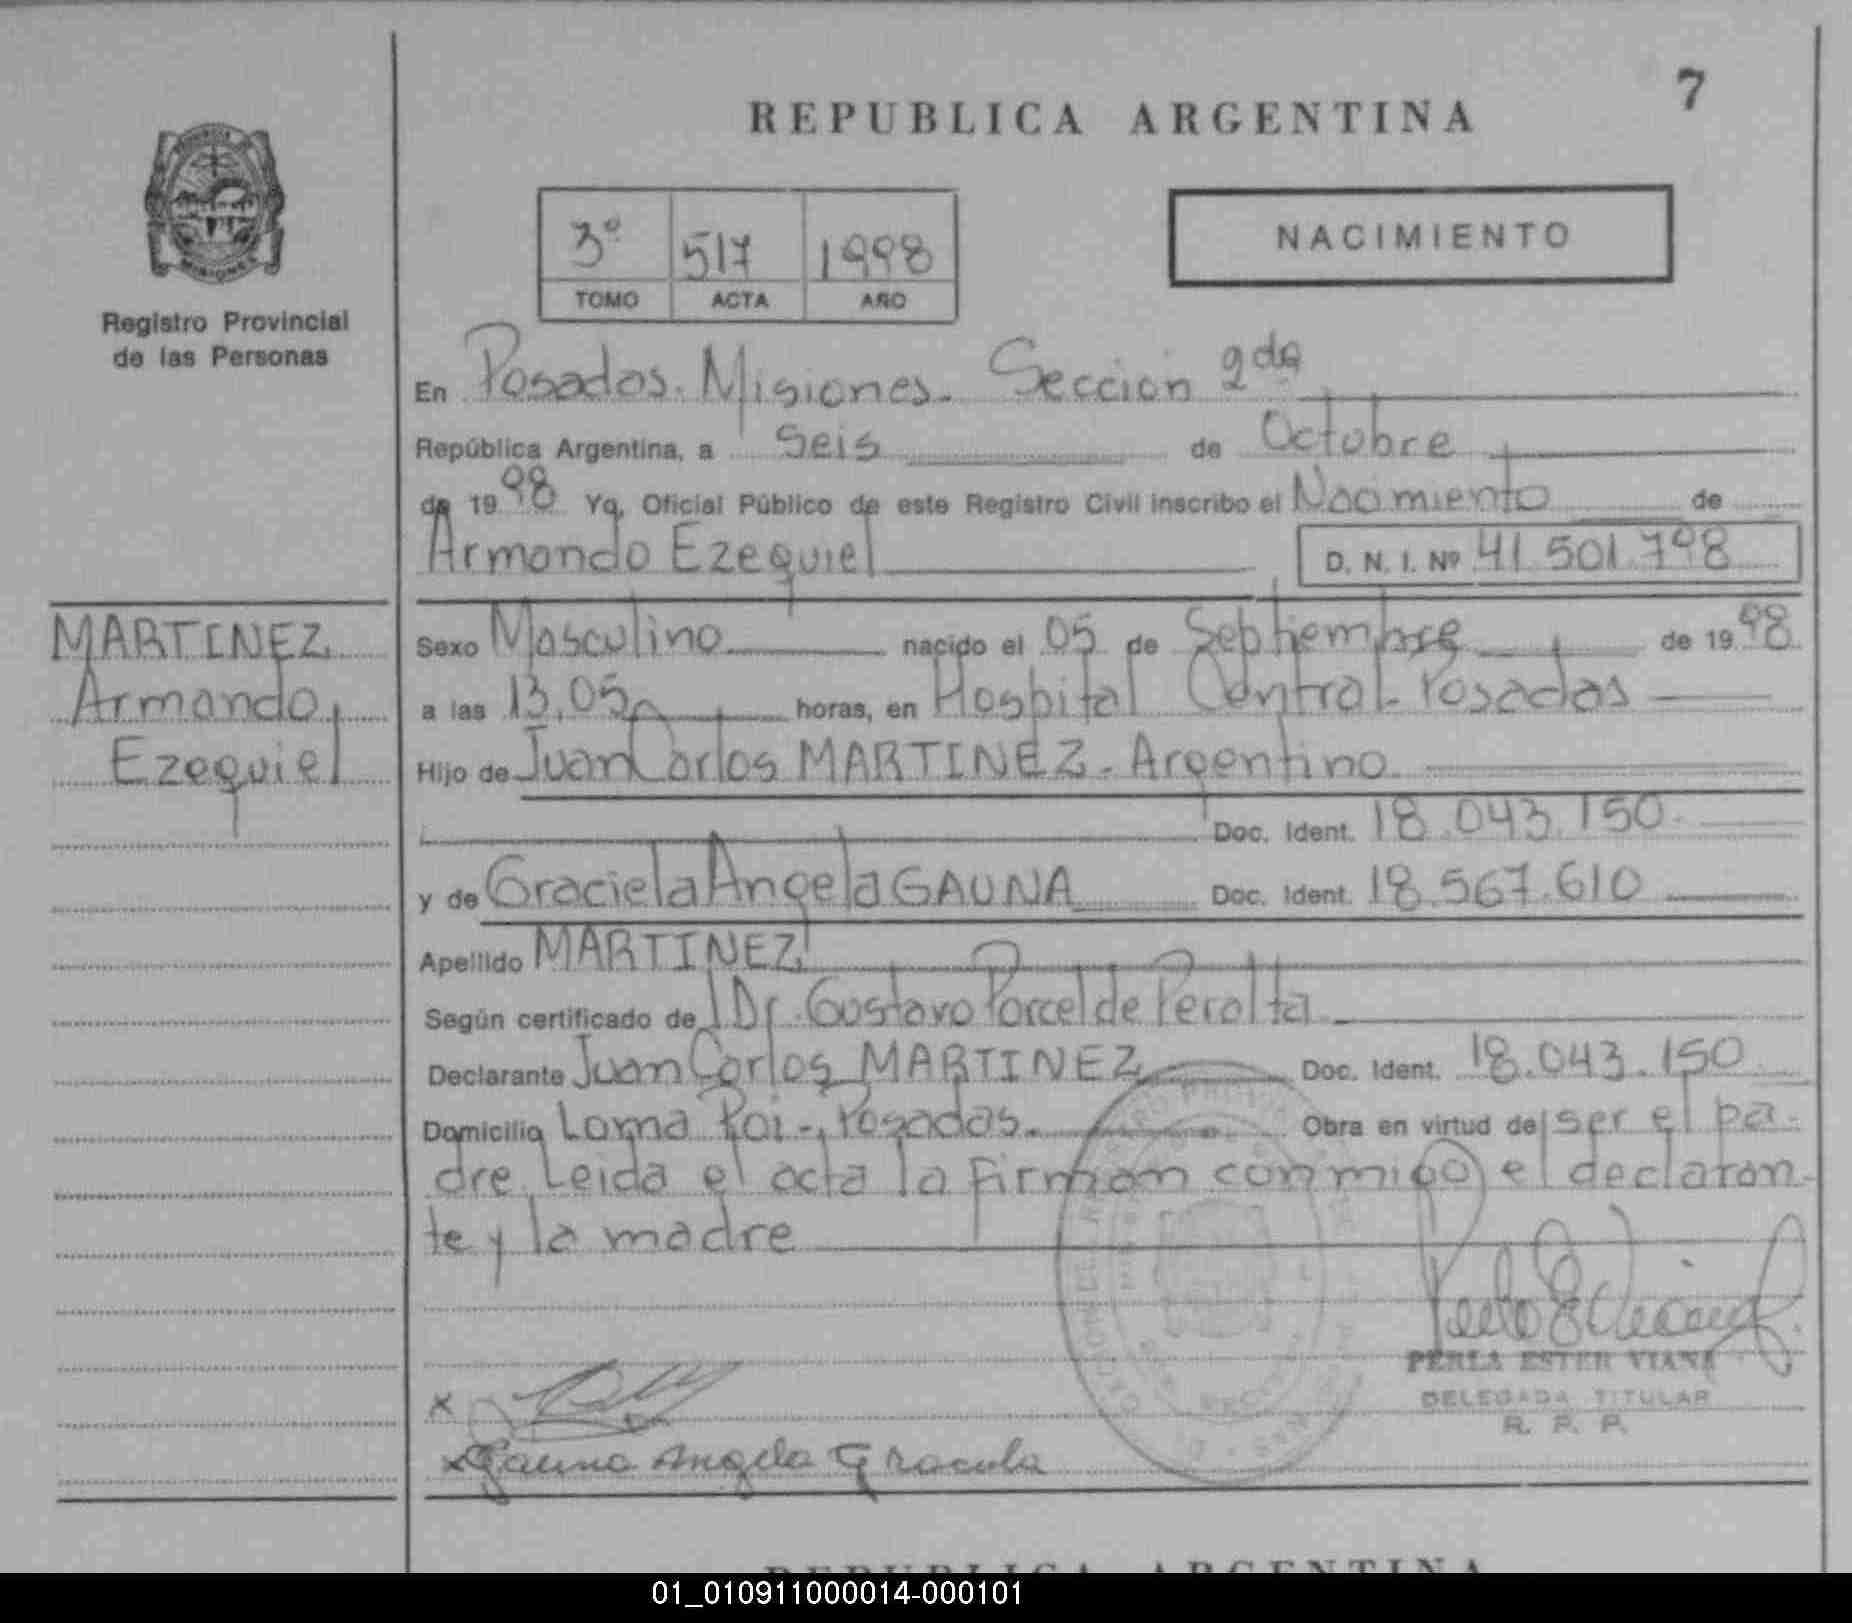 7
REPUBLICA ARGENTINA
NACIMIENTO
3º 517 1998
TOMO ACTA AÑO
MISIONES
Registro Provincial
de las Personas
En Posadas. Misiones. Seccion 2da
República Argentina, a Seis de Octubre
de 1998 Yo, Oficial Público de este Registro Civil inscribo el Nacimiento de
Armando Ezequiel D. N. I. Nº 41.501.798
MARTINEZ
Armando
Ezequiel
Sexo Masculino nacido el 05 de Septiembre de 1998
a las 13,05 horas, en Hospital Central-Posadas
Hijo de Juan Carlos MARTINEZ. Argentino
Doc. Ident. 18.043.150
y de Graciela Angela GAUNA Doc. Ident. 18.567.610
Apellido MARTINEZ
Según certificado de Dr. Gustavo Porcel de Peralta
Declarante Juan Carlos MARTINEZ Doc. Ident. 18.043.150
Domicilio Loma Poi-, Posadas. Obra en virtud de ser el pa-
dre. Leida el acta la firman conmigo el declaran-
te y la madre
PERLA ESTER VIANA
DELEGADA TITULAR
R. P. P.
x
x Gauna Angela Graciela
REPUBLICA ARGENTINA
01_010911000014-000101